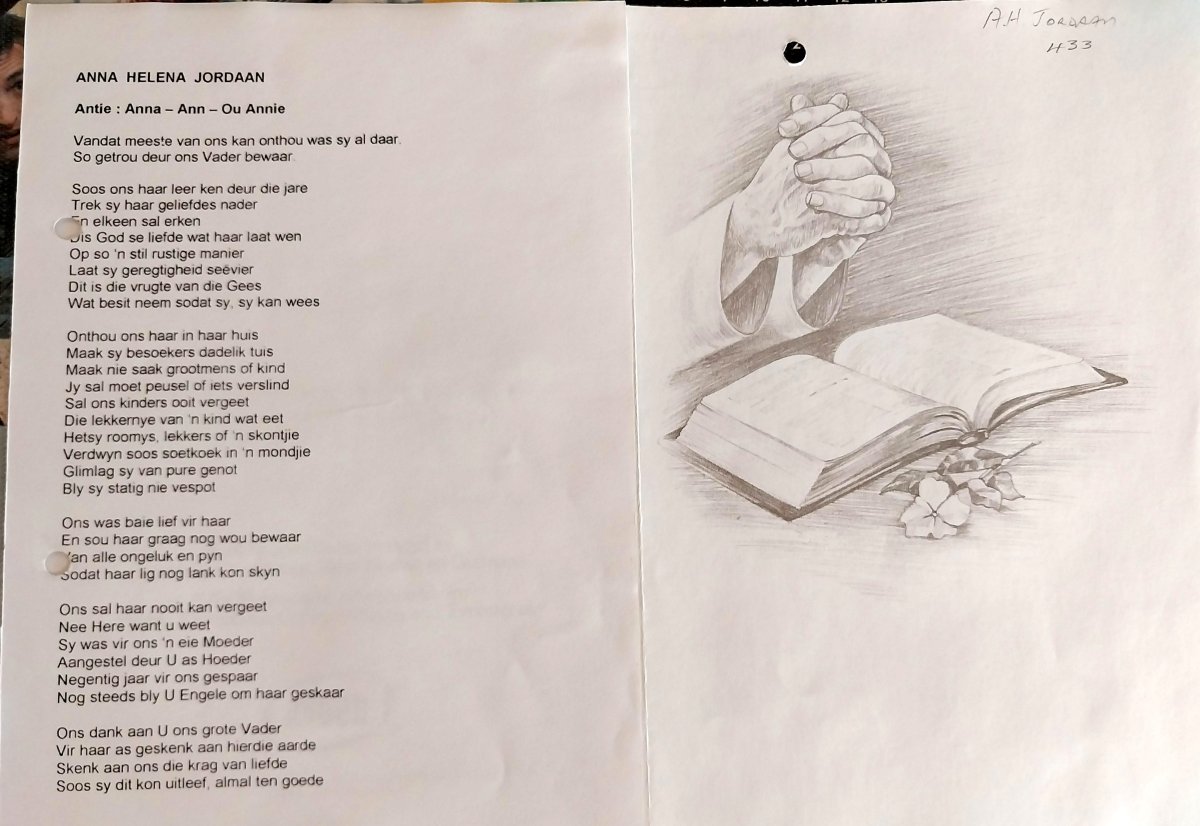 ANNA HELENA JORDAAN
Antie : Anna – Ann – Ou Annie
Vandat meeste van ons kan onthou was sy al daar.
So getrou deur ons Vader bewaar.
Soos ons haar leer ken deur die jare
Trek sy haar geliefdes nader
En elkeen sal erken
Dis God se liefde wat haar laat wen
Op so 'n stil rustige manier
Laat sy geregtigheid seëvier
Dit is die vrugte van die Gees
Wat besit neem sodat sy, sy kan wees
Onthou ons haar in haar huis
Maak sy besoekers dadelik tuis
Maak nie saak grootmens of kind
Jy sal moet peusel of iets verslind
Sal ons kinders ooit vergeet
Die lekkernye van 'n kind wat eet
Hetsy roomys, lekkers of 'n skontjie
Verdwyn soos soetkoek in 'n mondjie
Glimlag sy van pure genot
Bly sy statig nie vespot
Ons was baie lief vir haar
En sou haar graag nog wou bewaar
Van alle ongeluk en pyn
Sodat haar lig nog lank kon skyn
Ons sal haar nooit kan vergeet
Nee Here want u weet
Sy was vir ons 'n eie Moeder
Aangestel deur U as Hoeder
Negentig jaar vir ons gespaar
Nog steeds bly U Engele om haar geskaar
Ons dank aan U ons grote Vader
Vir haar as geskenk aan hierdie aarde
Skenk aan ons die krag van liefde
Soos sy dit kon uitleef, almal ten goede
AH JORDAAN
433